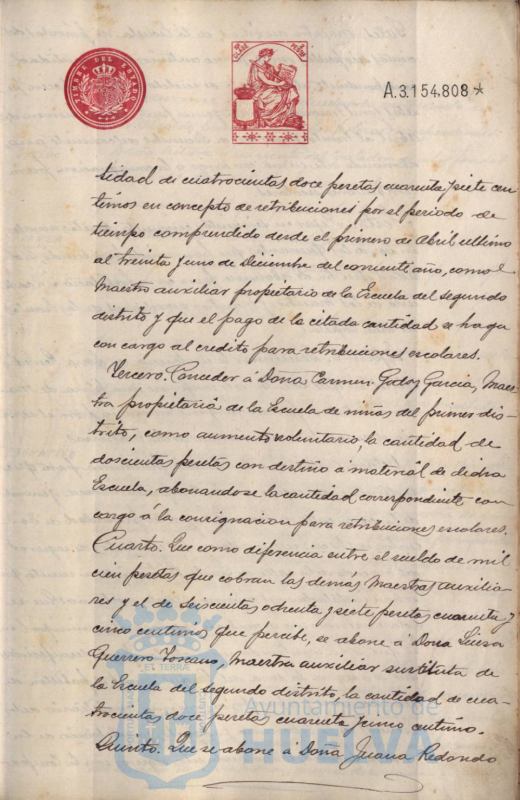 TIMBRE DEL ESTADO
CLASE
A.3.154.808*
tidad de cuatrocientas doce pesetas cuarenta y siete cen
timos en concepto de retribuciones por el periodo de
tiempo comprendido desde el primero de Abril ultimo
al treinta y uno de Diciembre del corriente año, como
Maestro auxiliar propietario de la Escuela del segundo
distrito y que el pago de la citada cantidad se haga
con cargo al credito para retribuciones escolares.
Tercero. Conceder á Doña Carmen Godoy Garcia, Maes
tra propietaria de la Escuela de niñas del primer dis
trito, como aumento voluntario, la cantidad de
doscientas pesetas con destino a material de dicha
Escuela, abonandose la cantidad correspondiente con
cargo á la consignacion para retribuciones escolares.
Cuarto. Que como diferencia entre el sueldo de mil
cien pesetas que cobran las demás Maestras auxilia
res y el de seiscientas ochenta y siete pesetas cuarenta y
cinco centimos que percibe, se abone á Doña Luisa
Guerrero Toscano, Maestra auxiliar sustituta de
la Escuela del segundo distrito, la cantidad de cua
trocientas doce pesetas cuarenta y cinco centimos.
Quinto. Que se abone á Doña Juana Redondo
Ayuntamiento de
HUELVA